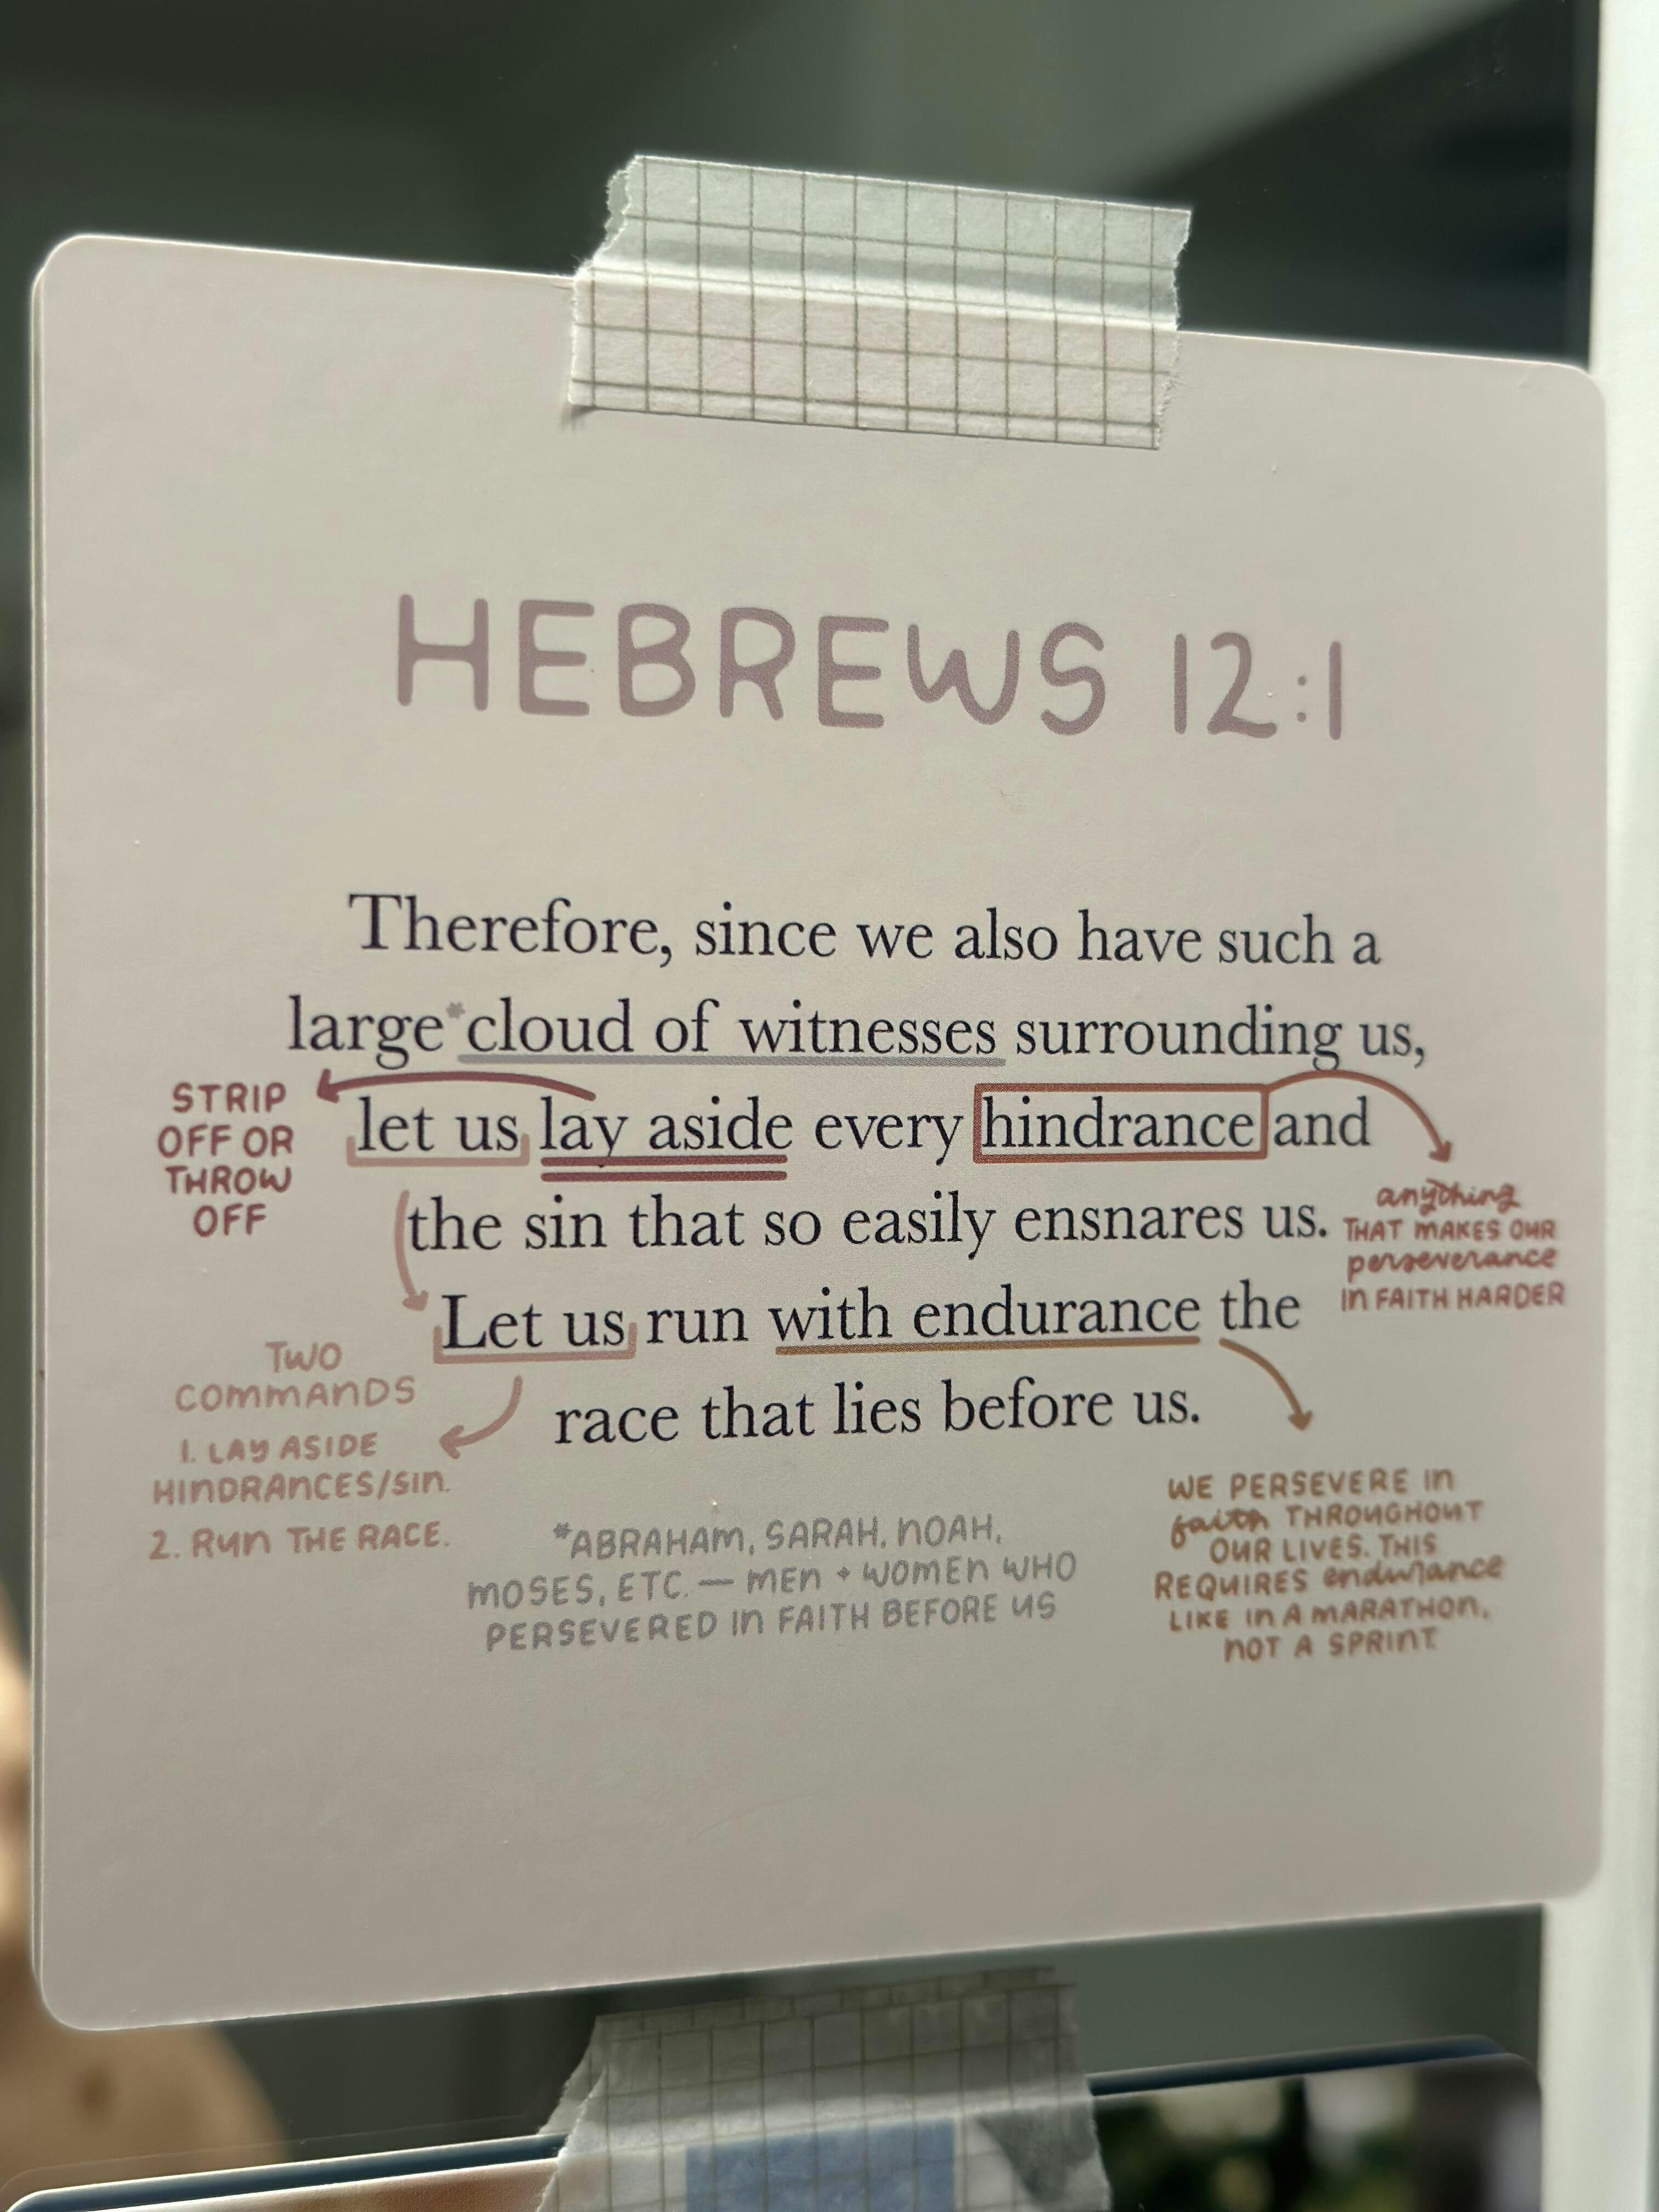 HEBREWS 12:1
Therefore, since we also have such a
large*cloud of witnesses surrounding us,
let us lay aside every hindrance and
the sin that so easily ensnares us.
Let us run with endurance the
race that lies before us.
STRIP
OFF OR
THROW
OFF
anything
THAT MAKES OUR
perseverance
IN FAITH HARDER
TWO
COMMANDS
1. LAY ASIDE
HINDRANCES/SIN.
2. RUN THE RACE.
*ABRAHAM, SARAH, NOAH,
MOSES, ETC. — MEN + WOMEN WHO
PERSEVERED IN FAITH BEFORE US
WE PERSEVERE IN
faith THROUGHOUT
OUR LIVES. THIS
REQUIRES endurance
LIKE IN A MARATHON,
NOT A SPRINT